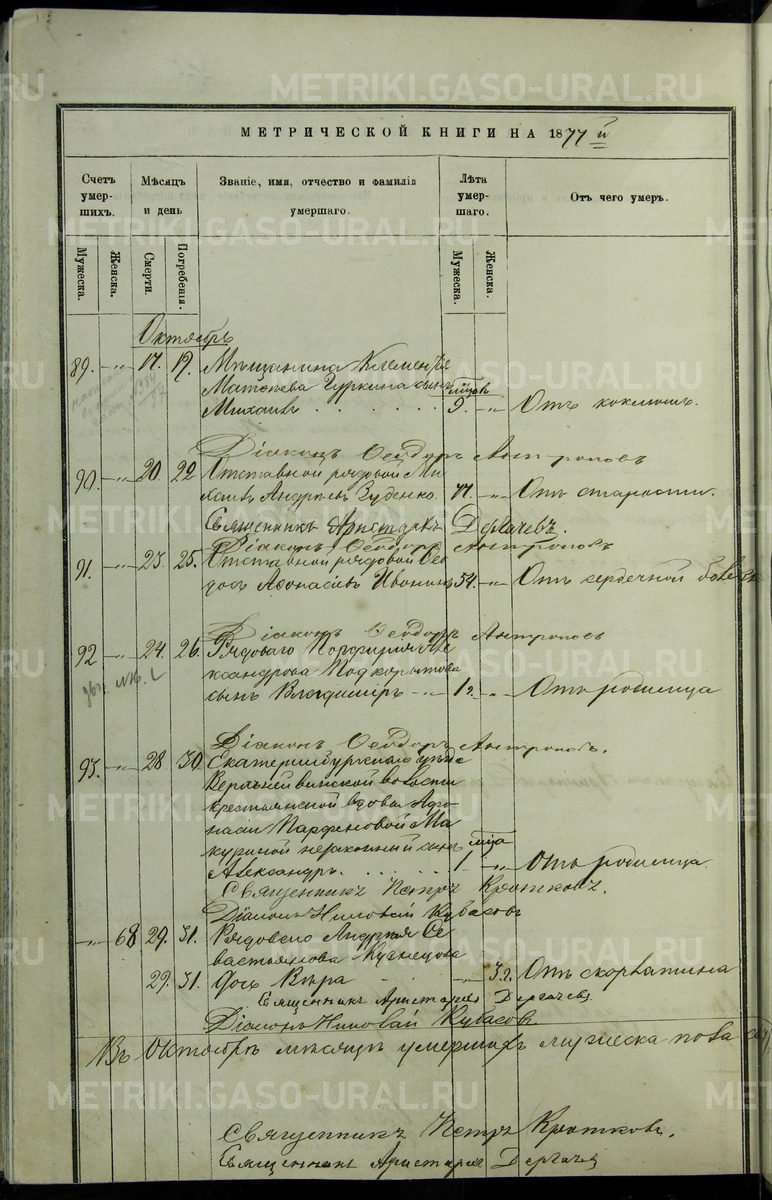 METRIKI.GASO-URAL.RU
МЕТРИЧЕСКОЙ КНИГИ НА 1877 й
Счетъ умерших. Мѣсяцъ и день Званіе, имя, отчество и фамилія умершаго. Лѣта умершаго. Отъ чего умеръ.
Мужеска. Женска. Смерти. Погребенія. Мужеска. Женска.
Октябрь
89. -"- 17. 19. Мѣщанина Клементія
Матѳеева Гуркина сынъ мѣсяцов
Михаилъ . . . . . 9. -"- Отъ коклюша.
Діаконъ Ѳеодоръ Антроповъ
90. -"- 20. 22 Отставной рядовой Ми
хаилъ Андреевъ Зуденко 77. -"- Отъ старости.
Священникъ Аристархъ Дергачевъ.
Діаконъ Ѳеодоръ Антроповъ
91. -"- 23. 25. Отставной рядовой Ѳе
досъ Аѳонасіевъ Ивонинъ 54. -"- Отъ сердечной болезни
Діаконъ Ѳеодоръ Антроповъ
92 -"- 24. 26. Рядоваго Порфирія Але
ксандрова Подкорытова
сынъ Владимиръ -"- 1 г. -"- Отъ родимца
Діаконъ Ѳеодоръ Антроповъ.
93. -"- 28 30 Екатеринбургскаго уезда
Верхнейвинской волости
крестьянской вдовы Афо
насіи Парфеновой Ма
куриной незаконный сынъ мѣсяца
Александръ. . . . . . 1 -"- Отъ родимца.
Священникъ Петръ Кротковъ.
Діаконъ Николай Кубасовъ
-"- 68 29. 31. Рядоваго Андрея Се
вастьянова Кузнецова
29. 31. дочь Вѣра -"- 3 г. Отъ скорлатина
Священникъ Аристархъ Дергачевъ
Діаконъ Николай Кубасов.
Въ Октябрѣ мѣсяцѣ умершихъ мужеска пола
Священникъ Петръ Кротковъ.
Священникъ Аристархъ Дергачев